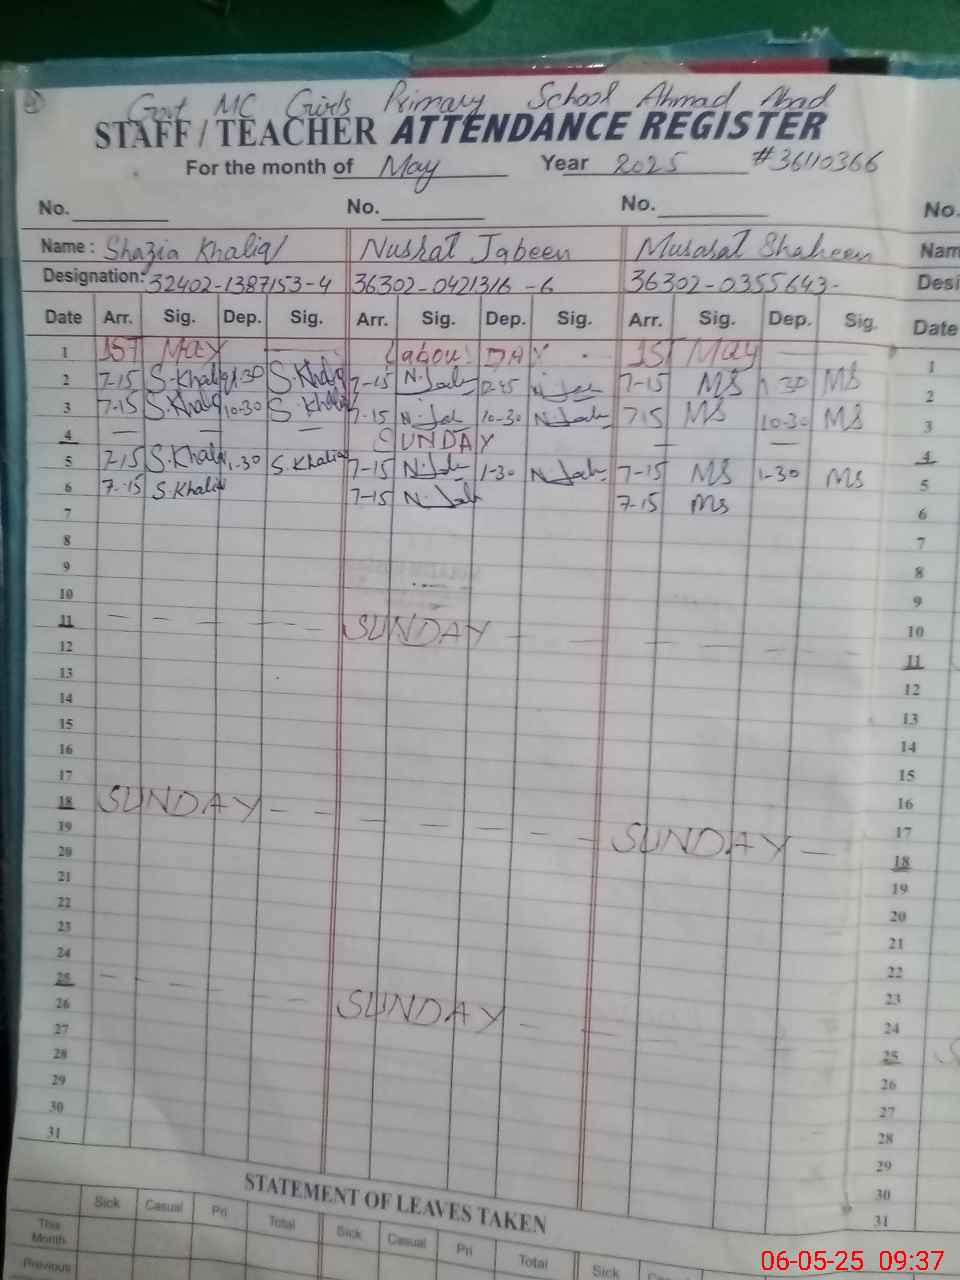 Govt MC Girls Primary School Ahmad Abad
STAFF / TEACHER ATTENDANCE REGISTER
For the month of May Year 2025 #36110366
No. No. No. No.
Name : Shazia Khaliq Nusrat Jabeen Musarat Shaheen Nam
Designation: 32402-1387153-4 36302-0421316-6 36302-0355643- Desi
Date Arr. Sig. Dep. Sig. Arr. Sig. Dep. Sig. Arr. Sig. Dep. Sig. Date
1 1ST MAY Labour DAY 1ST May 1
2 7-15 S.Khaliq 1-30 S.Khaliq 7-15 N.Jab 12-45 N.Jab 7-15 MS 1-30 MS 2
3 7-15 S.Khaliq 10-30 S.Khaliq 7-15 N.Jab 10-30 N.Jab 7-15 MS 10-30 MS 3
4 — — — SUNDAY — — 4
5 7-15 S.Khaliq 1-30 S.Khaliq 7-15 N.Jab 1-30 N.Jab 7-15 MS 1-30 MS 5
6 7-15 S.Khaliq 7-15 N.Jab 7-15 MS 6
7 7
8 8
9 9
10 10
11 SUNDAY 11
12 12
13 13
14 14
15 15
16 16
17 17
18 SUNDAY SUNDAY 18
19 19
20 20
21 21
22 22
23 23
24 24
25 SUNDAY 25
26 26
27 27
28 28
29 29
30 30
31 31
STATEMENT OF LEAVES TAKEN
Sick Casual Pri Total Sick Casual Pri Total Sick
This Month
Previous
06-05-25 09:37